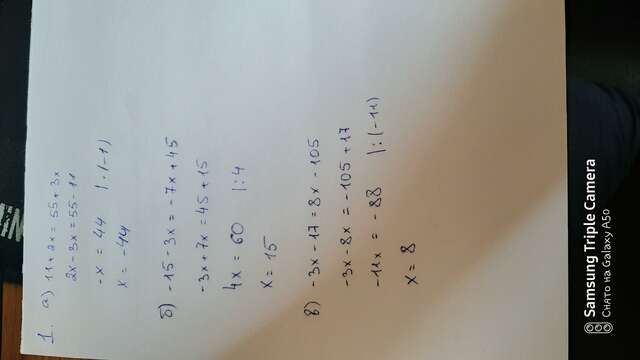 1. а) 11+2x = 55+3x
2x-3x = 55-11
-x = 44 | · (-1)
x = -44
б) -15-3x = -7x+45
-3x+7x = 45+15
4x = 60 |:4
x = 15
в) -3x-17 = 8x-105
-3x-8x = -105+17
-11x = -88 |:(-11)
x = 8
Samsung Triple Camera
Снято на Galaxy A50